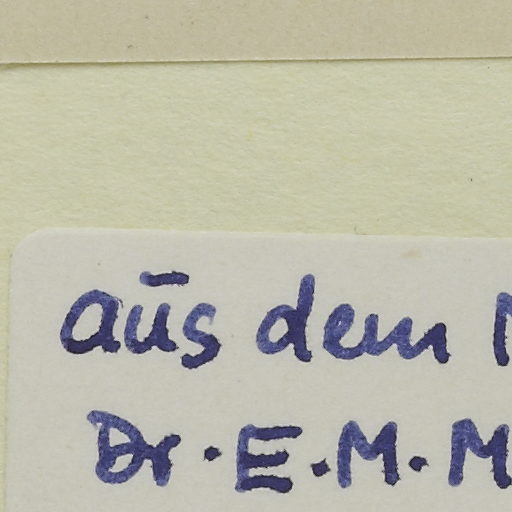 aus dem
Dr. E. M.